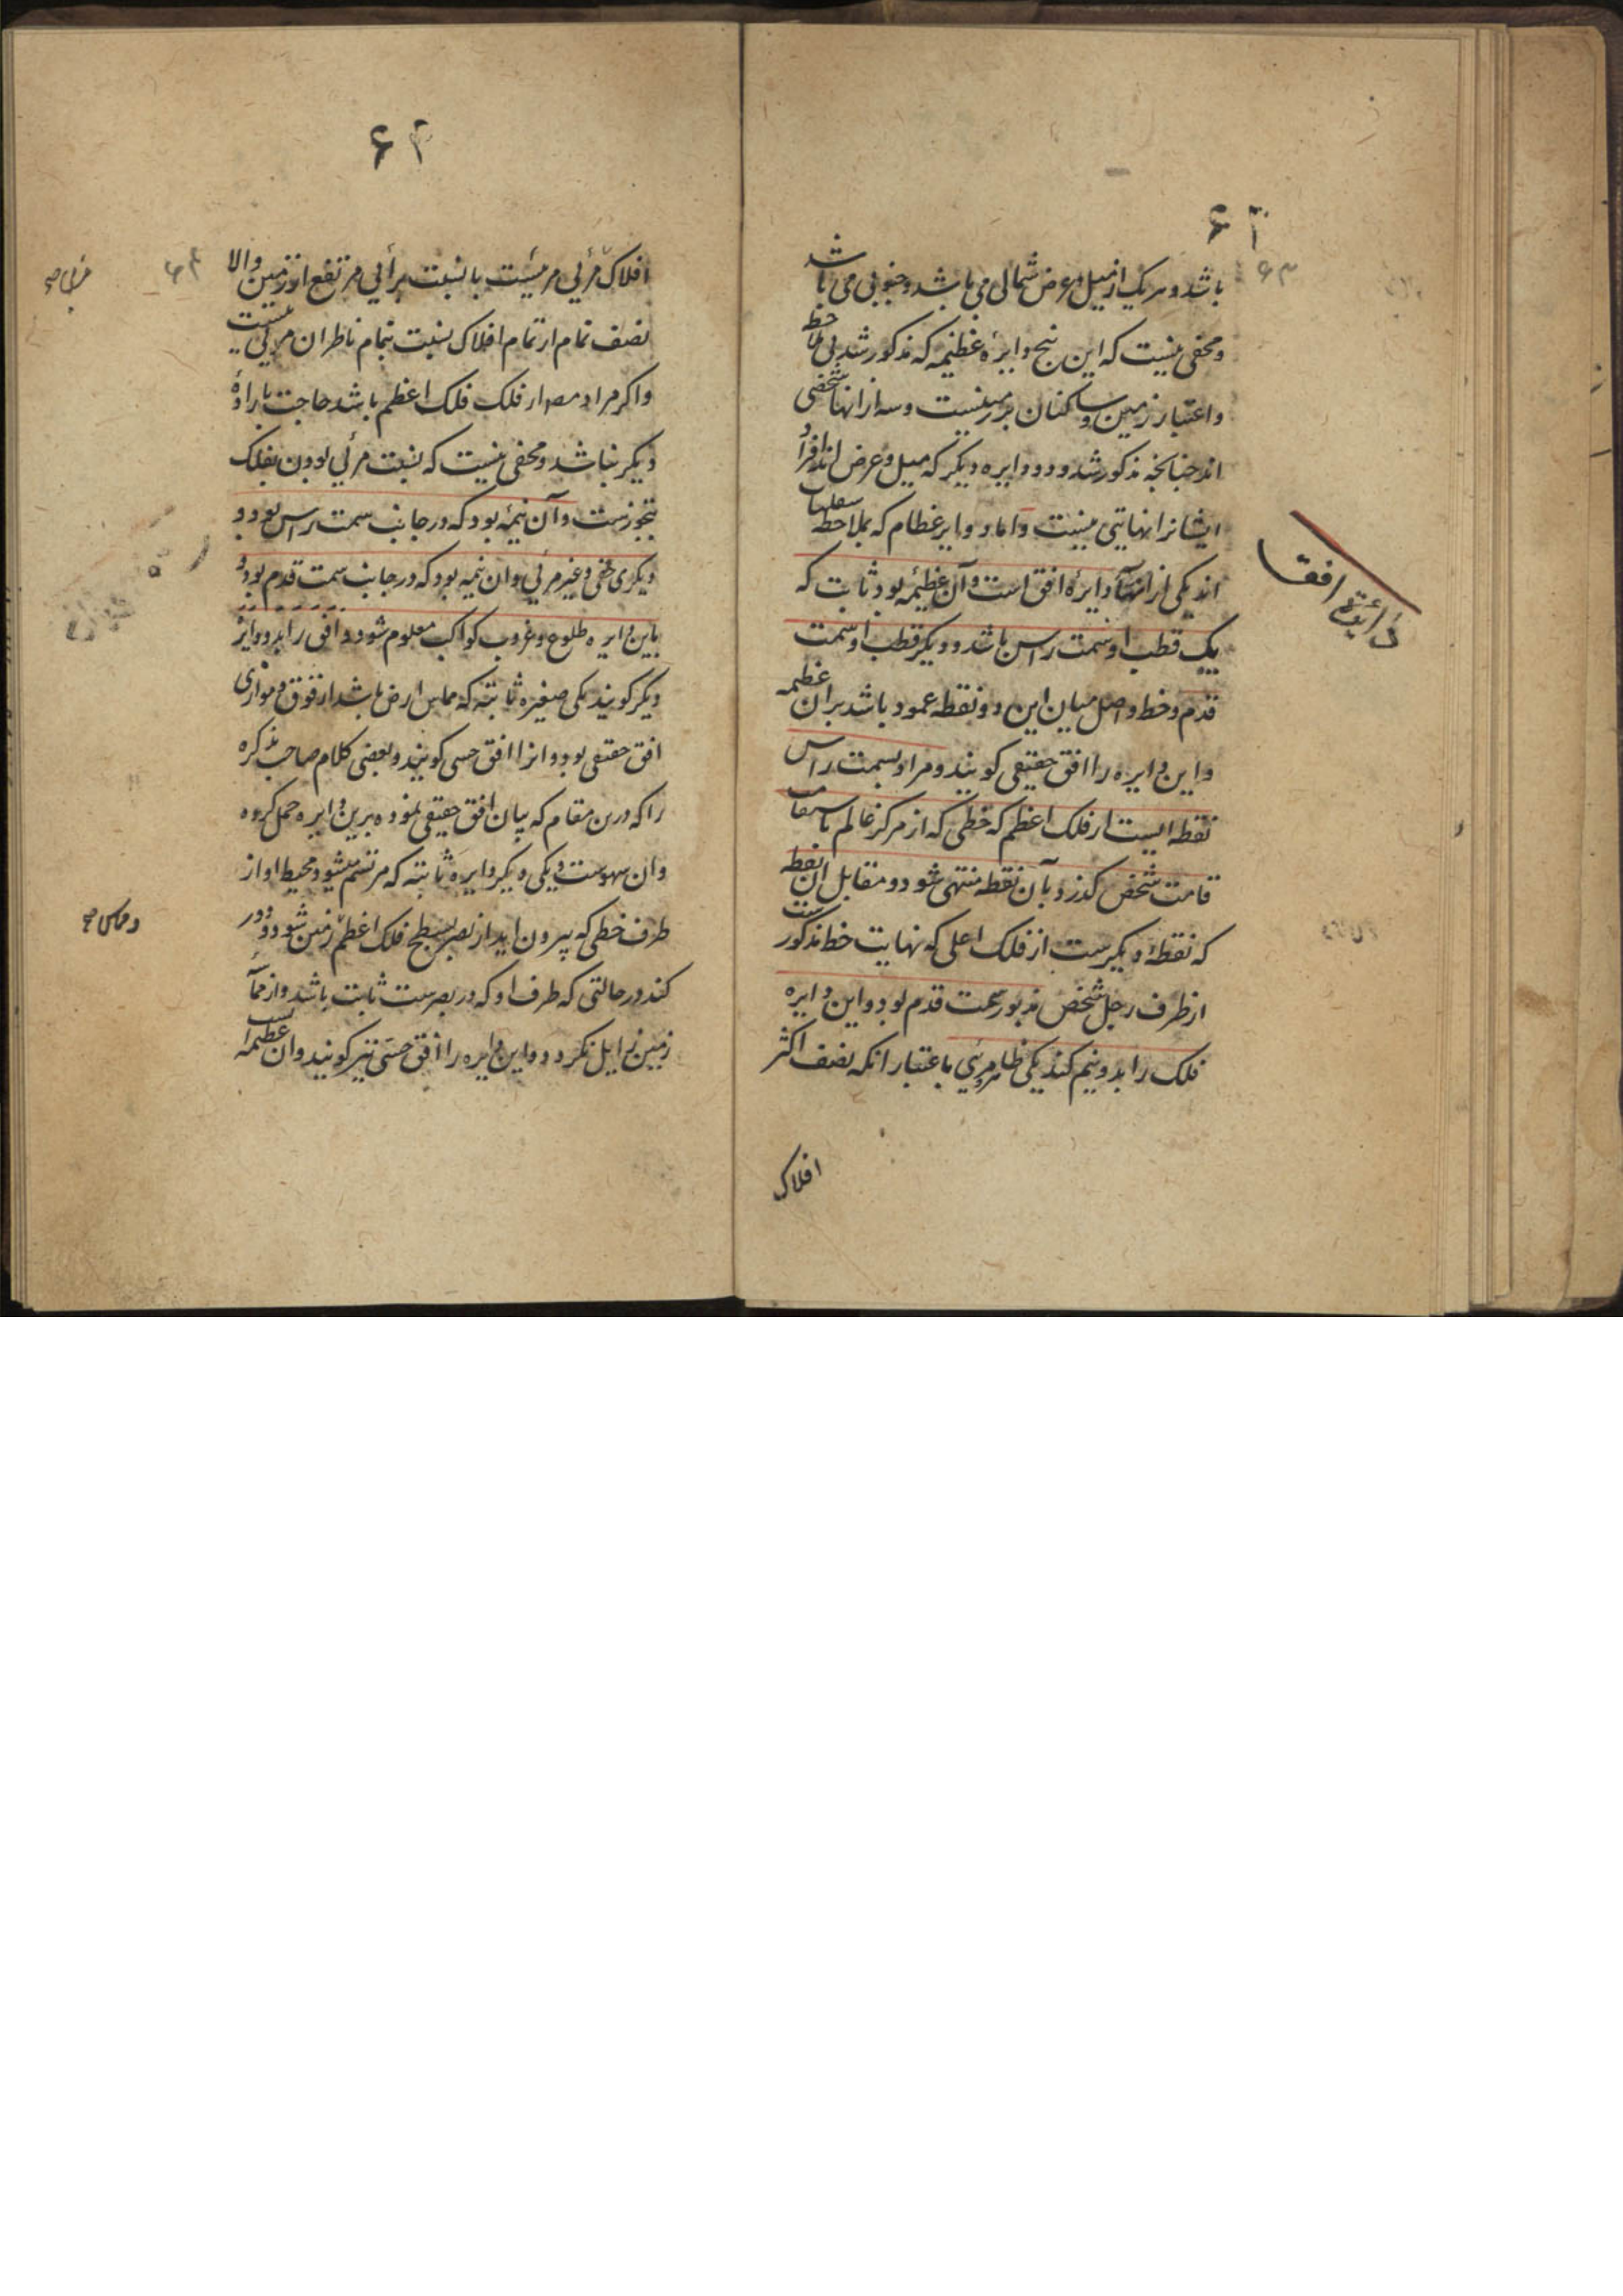 ۶۳
۶۳
باشد و هر یک از میل و عرض شمالی می باشد و جنوبی می باشد
و مخفی نیست که این پنج دایرهٔ عظیمه که مذکور شد بی ملاحظه
و اعتبار زمین و ساکنان بر زمینست و سه از انها شخصی
اند چنانچه مذکور شد و دو دایره دیکر که میل و عرض اند افراد
ایشانرا نهایتی نیست و اما دوایر عظام که بملاحظه سفلیات
اند یکی از انها دایرهٔ افق است و آن عظیمهٔ بود ثابت که
دائرهٔ افق
یک قطب او سمت راس باشد و دیکر قطب او سمت
قدم و خط واصل میان این دو نقطه عمود باشد بران عظیمه
و این دایره را افق حقیقی کویند و مراد بسمت راس
نقطه ایست از فلک اعظم که خطی که از مرکز عالم باستقامت
قامت شخص کذرد بآن نقطه منتهی شود و مقابل ان نقطه
که نقطهٔ دیکرست از فلک اعلی که نهایت خط مذکورست
از طرف رجل شخص مذبور سمت قدم بود و این دایره
فلک را بدو نیم کند یکی ظاهر و مرئی باعتبار انکه نصف اکثر
افلاک
۶۴
۶۴
افلاک مرئی مرئیست بالنسبت برأیی مرتفع از زمین والا
نصف تمام از تمام افلاک نسبت بتمام ناظران مرئی نیست
و اکر مراد مصـ از فلک فلک اعظم باشد حاجت بارادهٔ
دیکر نباشد و مخفی نیست که نسبت مرئی بودن بفلک
بتجوزست و آن نیمهٔ بود که در جانب سمت راس بود و
دیکری خفی و غیر مرئی و ان نیمه بود که در جانب سمت قدم بود و
باین دایره طلوع و غروب کواکب معلوم شود و افق را بدو دایرهٔ
دیکر کویند یکی صغیره ثابته که مماس ارض باشد از فوق و موازی
افق حقیقی بود و انرا افق حسی کویند و بعضی کلام صاحب تذکره
را که درین مقام که بیان افق حقیقی نموده برین دایره حمل کرده
وان سهوست و یکی دیکر دایرهٔ ثابته که مرتسم میشود محیط او از
طرف خطی که بیرون اید از بصر بسطح فلک اعظم زمین شود و دور
کند در حالتی که طرف او که در بصرست ثابت باشد و از مماست
زمین زایل نکردد و این دایره را افق حسی نیز کویند وان عظیمه